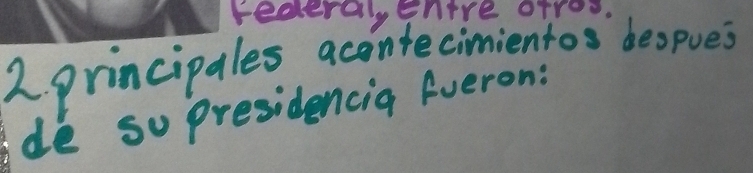 Federal, entre otros.
2. principales acontecimientos despues
de su presidencia fueron: